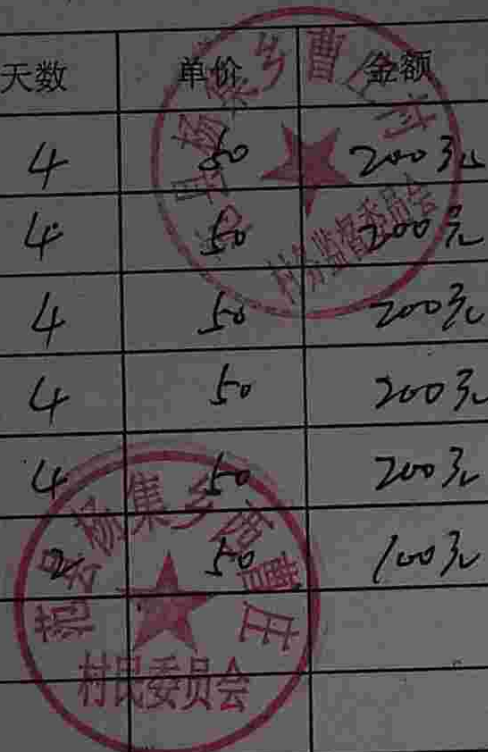 天数 单价 金额
4 50 200元
4 50 200元
4 50 200元
4 50 200元
4 50 200元
2 50 100元
杨集乡曹庄村
村务监督委员会
范县杨集乡西曹庄
村民委员会